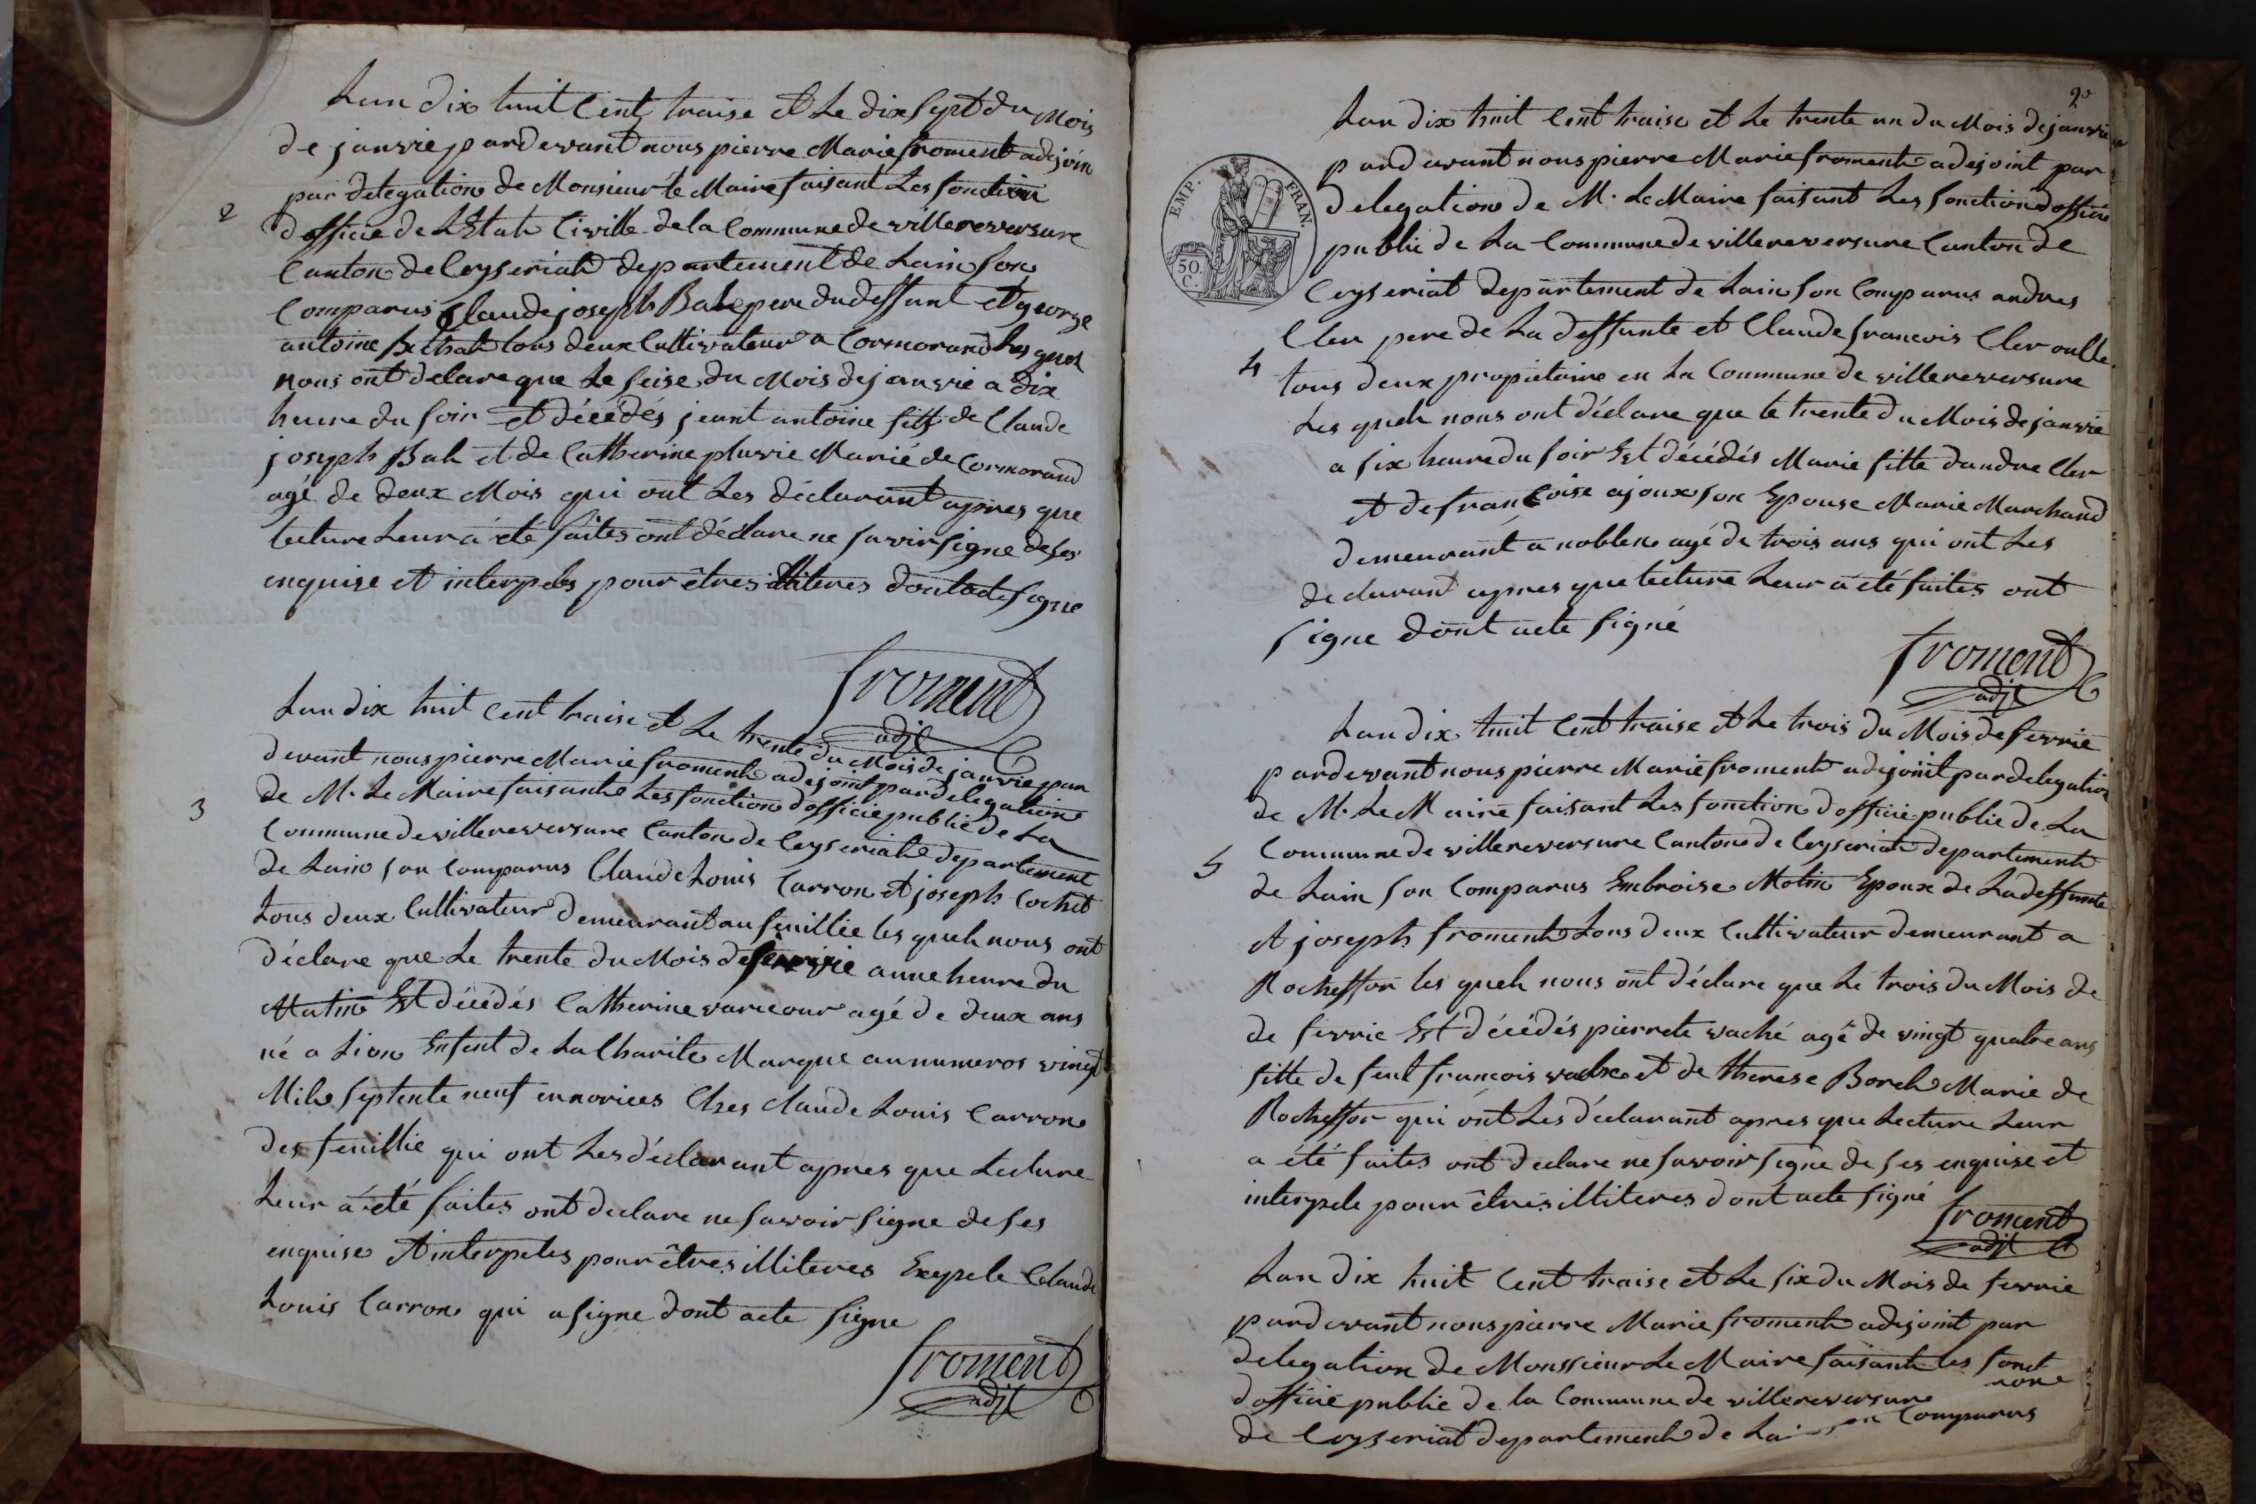 Lan dix huit Cent traise et Le dix Sept du Mois
de janvie pardevant nous pierre Marie froment adejoin
par delegation de Monsieur le Maire faisant Les fonction
2
dofficie de LEtat Civille de la Commune de villereversure
Canton de Ceyseriat departement de Lain son
Comparus Claude joseph Bah pere du deffunt et george
antoine tous deux Cultivateur a Cormorand Les quel
nous ont delare que Le seise du Mois de janvie a dix
heure du soir et décédés jeant antoine fils de Claude
joseph Bah et de Catherine pluvie Marié de Cormorand
agé de deux Mois qui ont Les déclarant apres que
lecture Leur a été faites ont déclare ne savoir signe de ses
enquise et interpeles pour êtres illiteres dont acte signe
froment
adjt
Lan dix huit Cent traise et Le trente du Mois de janvie par
devant nous pierre Marie froment adejoint par delegation
de M. Le Maire faisant Les fonction dofficie public de La
3
Commune de villereversure Canton de Ceyseriat departement
de Lain son Comparus Claude Louis Carron et joseph Cochet
tous deux Cultivateur demeurant au feuillée les queh nous ont
déclare que Le trente du Mois de a une heure du
Matin Est décédés Catherine varicour agé de deux ans
né a Lion Enfent de La Charite Marque au numeros vingt
Mile septente neuf en norices Ches Claude Louis Carron
des feuillie qui ont Les déclarant apres que Lecture
Leur a été faites ont declare ne savoir signe de ses
enquise et interpeles pour êtres illiteres Exepele Claude
Louis Carron qui a signe dont acte signe
froment
adjt
20
Lan dix huit Cent traise et Le trente un du Mois de janvie
pardevant nous pierre Marie froment adejoint par
EMP. FRAN.
50. C.
delegation de M. Le Maire faisant Les fonction dofficie
public de La Commune de villereversure Canton de
Ceyseriat departement de Lain son Comparus andres
Cler pere de La deffunte et Claude francois Cler
4
tous deux propietaire en La Commune de villereversure
Les queh nous ont déclare que le trente du Mois de janvie
a six heure du soir Est décédés Marie fille dandre Cler
et de francoise ajoux son Epouse Marie Marchand
demeurant a noblens agé de trois ans qui ont Les
declarant apres que lecture Leur a été faites ont
signe dont acte signé
froment
adjt
Lan dix huit Cent traise et Le trois du Mois de fevrie
pardevant nous pierre Marie froment adejoint par delegation
de M. Le Maire faisant Les fonction dofficie public de La
Commune de villereversure Canton de Ceyseriat departement
5
de Lain son Comparus Embroise Molin Epoux de La deffunte
et joseph froment tous deux Cultivateur demeurant a
Rocheffor les queh nous ont déclare que Le trois du Mois de
de fevrie Est décédés pierrete vaché agé de vingt quatre ans
fille de feut francois vache et de therese Borel Marie de
Rocheffor qui ont Les déclarant apres que Lecture Leur
a été faites ont declare ne savoir signe de ses enquise et
interpele pour êtres illiteres dont acte signé
froment
adjt
Lan dix huit Cent traise et Le six du Mois de fevrie
pardevant nous pierre Marie froment adejoint par
delegation de Monssieur Le Maire faisant les fonct
dofficie public de la Commune de villereversure
de Ceyseriat departement de Lain son Comparus